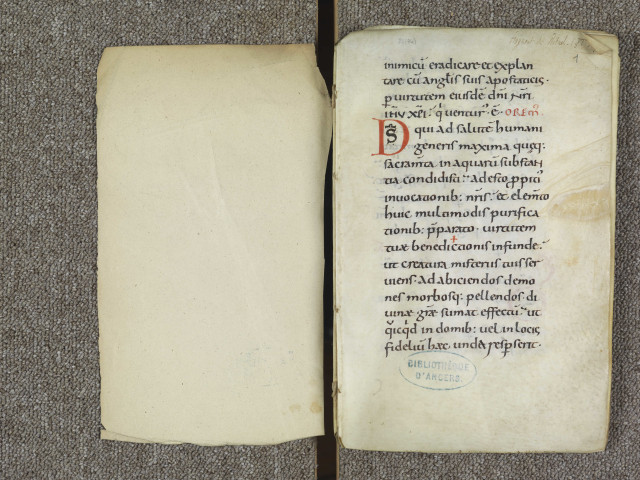 1
inimicū eradicare et explan
tare cū anglis suis apostaticis.
p uirtutem eiusdē dnī nrī
ihu xpi. q uenturꝰ ē. OREMꝰ
DS̄ qui ad salutē humani
generis maxima quęq;
sacramta in aquarū substan
tia condidisti. adesto ppitiꝰ
inuocationib: nris. et elemto
huic multimodis purifica
tionib: pparato. uirtutem
tuæ bene✝dictionis infunde.
ut creatura misteriis tuis ser
uiens. Ad abiciendos demo
nes morbosq; pellendos di
uinæ grae sumat effectū. ut
quicqd in domib: uel in locis
fideliū hæc unda resperserit.
BIBLIOTHÈQUE
D'ANGERS